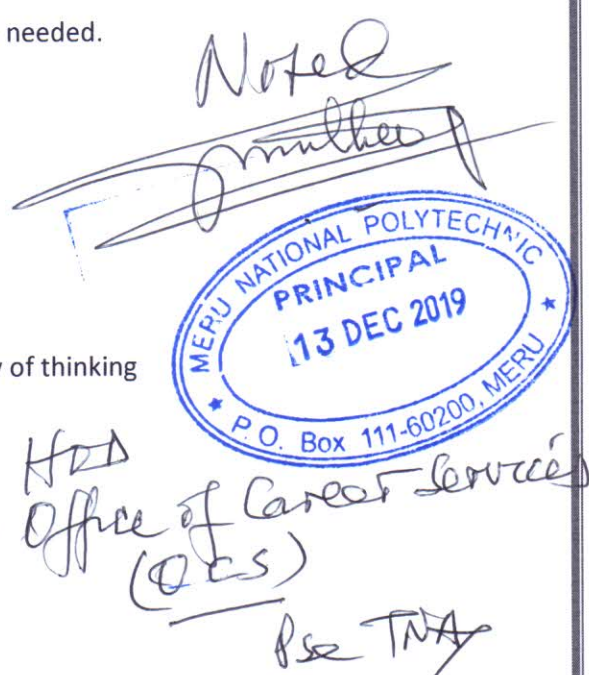 needed.
Noted
MERU NATIONAL POLYTECHNIC
PRINCIPAL
13 DEC 2019
★ P.O. Box 111-60200, MERU ★
of thinking
HOD
Office of Career Services
(OCS)
Pse TNA